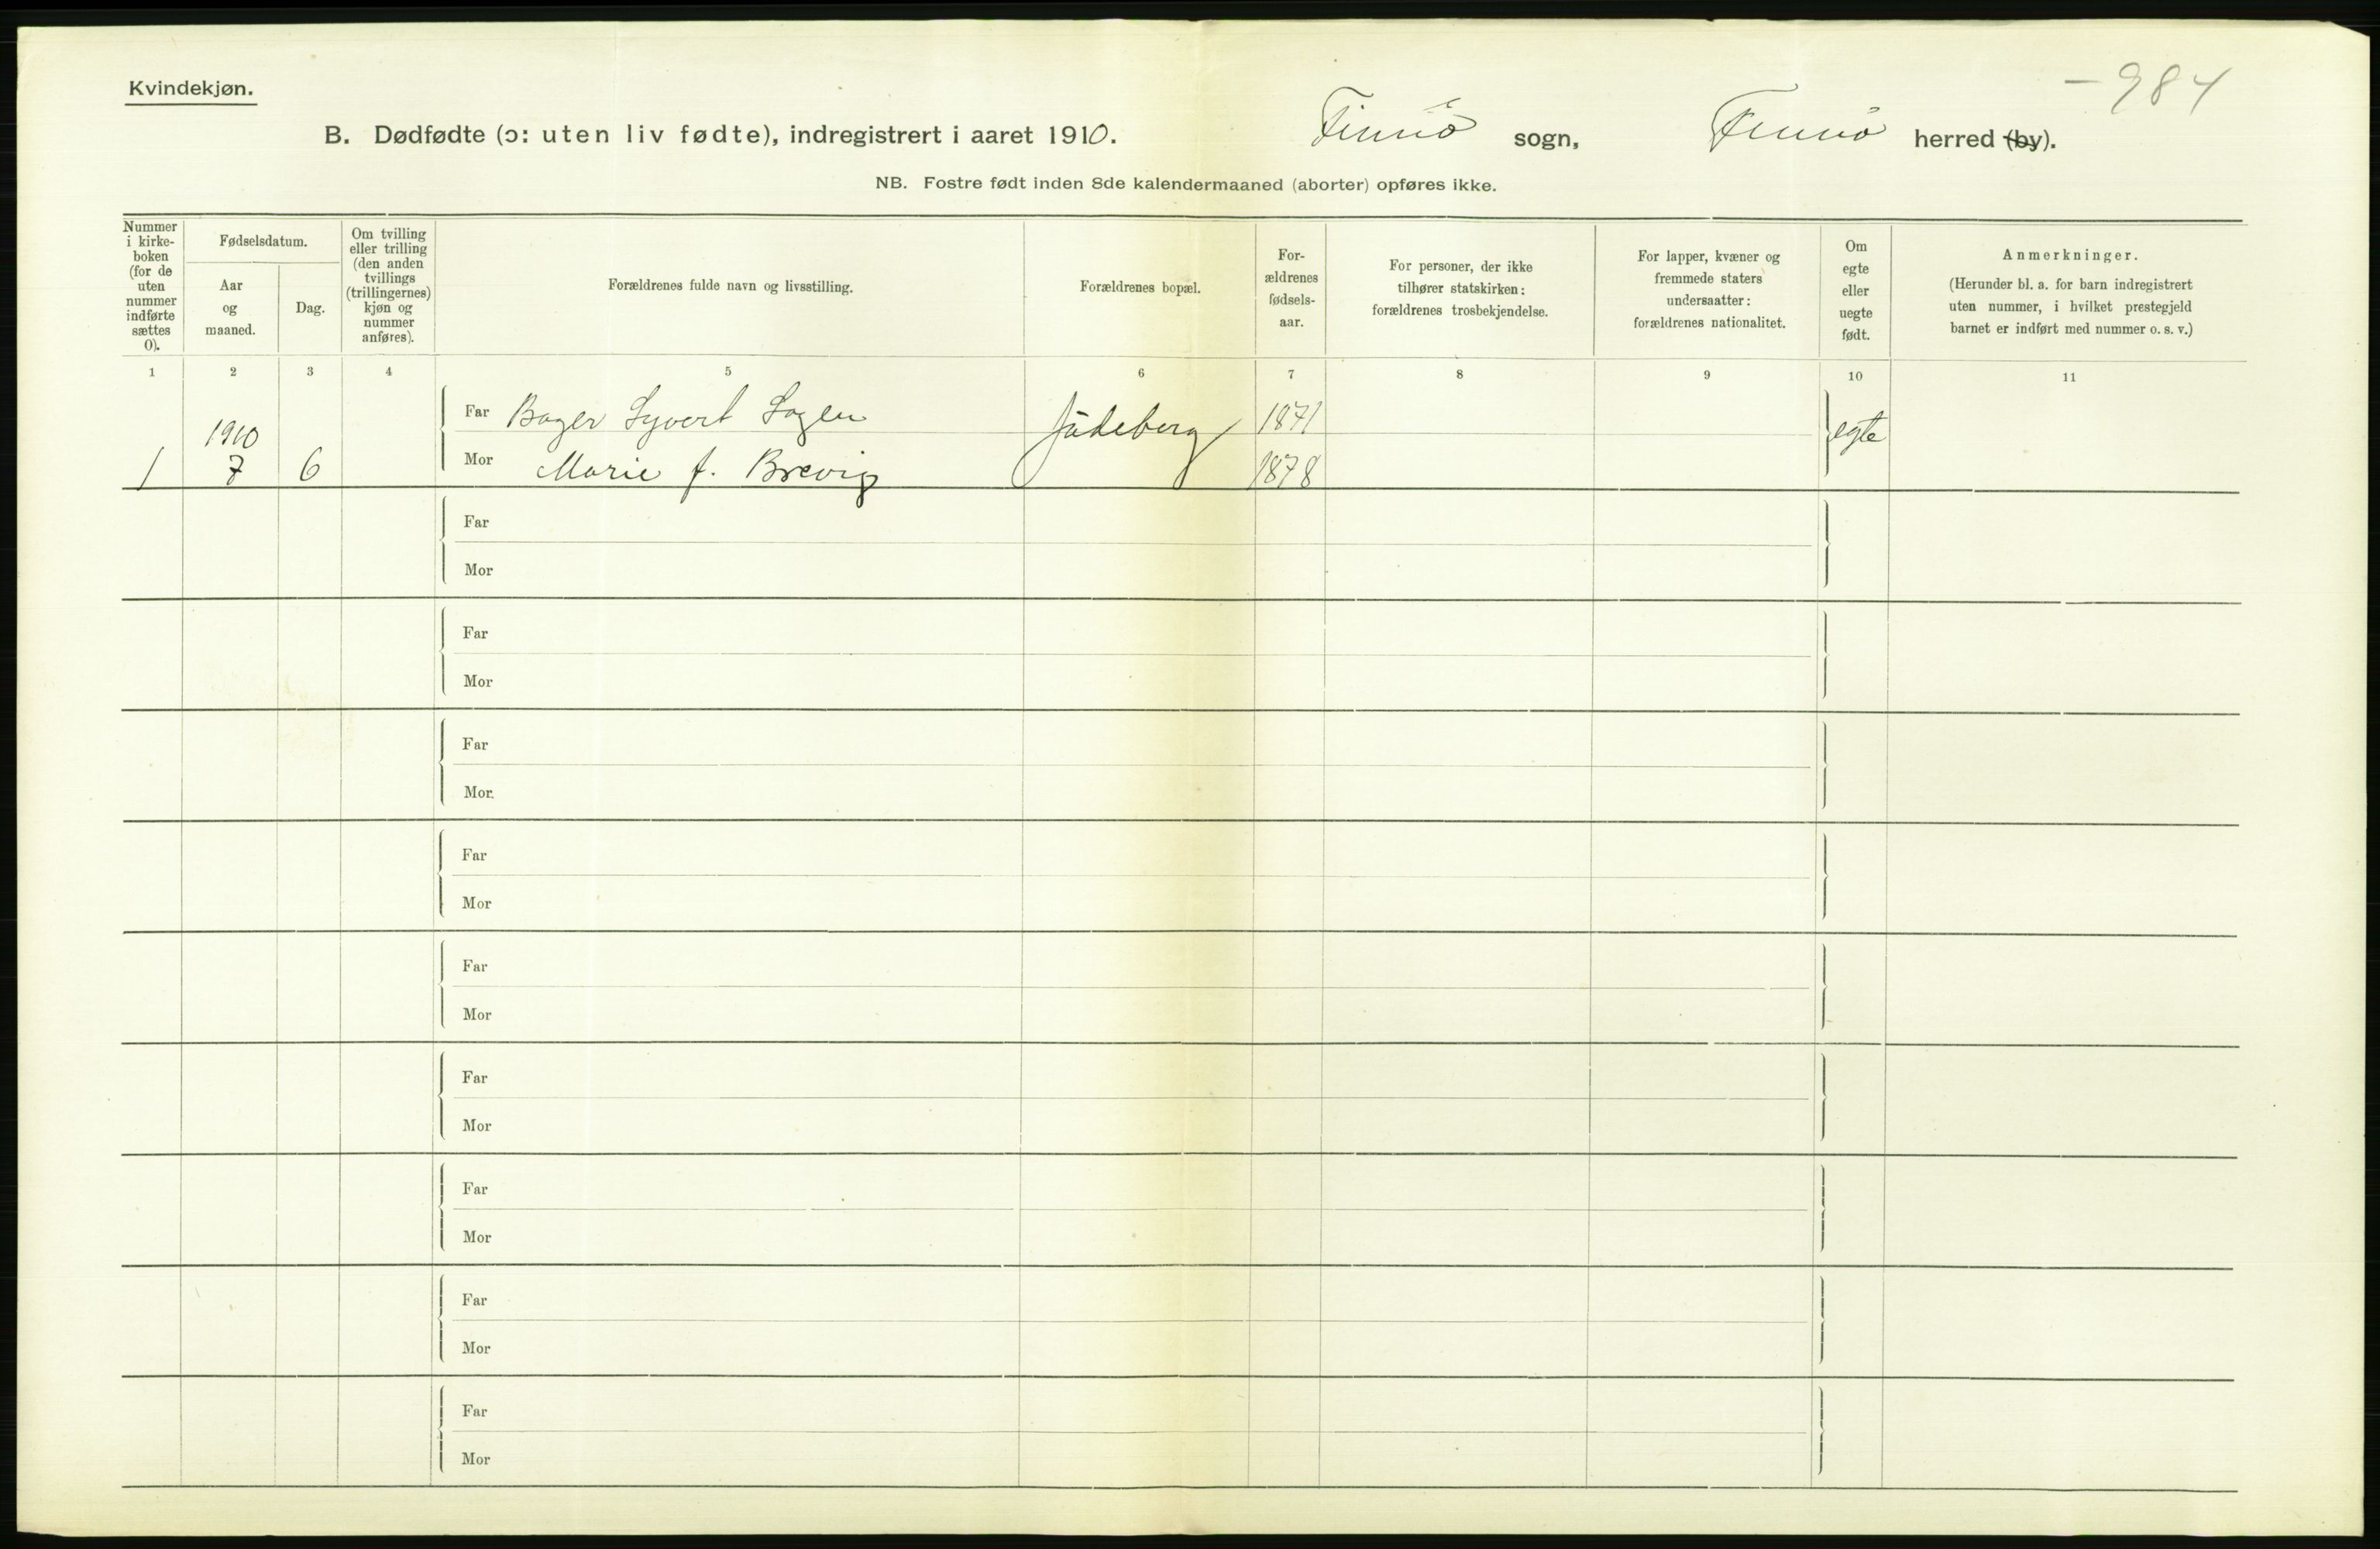 Kvindekjøn.
- 984
B. Dødfødte (ɔ: uten liv fødte), indregistrert i aaret 1910. Finnö sogn, Finnö herred (by).
NB. Fostre født inden 8de kalendermaaned (aborter) opføres ikke.
Nummer i kirke- boken (for de uten nummer indførte sættes 0).
Fødselsdatum.
Aar og maaned.
Dag.
Om tvilling eller trilling (den anden tvillings (trillingernes) kjøn og nummer anføres).
Forældrenes fulde navn og livsstilling.
Forældrenes bopæl.
For- ældrenes fødsels- aar.
For personer, der ikke tilhører statskirken: forældrenes trosbekjendelse.
For lapper, kvæner og fremmede staters undersaatter: forældrenes nationalitet.
Om egte eller uegte født.
Anmerkninger.
(Herunder bl. a. for barn indregistrert uten nummer, i hvilket prestegjeld barnet er indført med nummer o. s. v.)
1 2 3 4 5 6 7 8 9 10 11
1910 Far Bager Syvert Sagen Judeberg 1871 egte
1 7 6 Mor Marie f. Brevig 1878
Far
Mor
Far
Mor
Far
Mor.
Far
Mor
Far
Mor
Far
Mor
Far
Mor
Far
Mor
Far
Mor